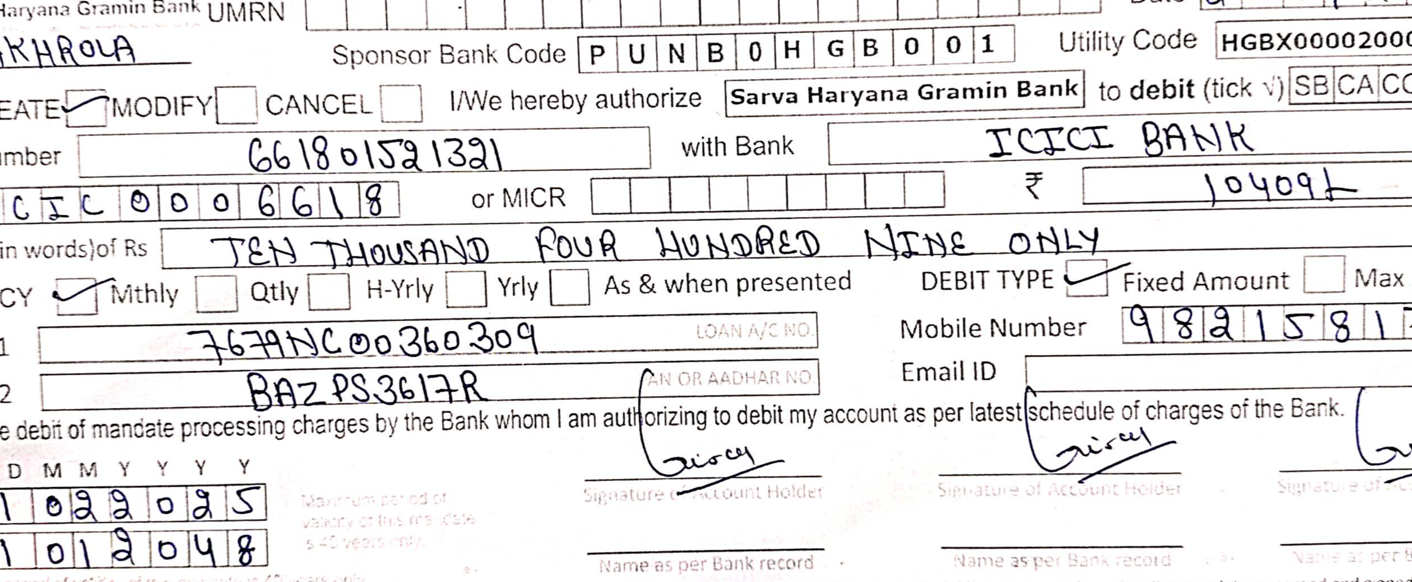 Haryana Gramin Bank UMRN
KHROLA Sponsor Bank Code PUNB0HGB001 Utility Code HGBX00002000
EATE MODIFY CANCEL I/We hereby authorize Sarva Haryana Gramin Bank to debit (tick √) SB CA CC
mber 661801521321 with Bank ICICI BANK
CIC0006618 or MICR ₹ 10409/-
in words)of Rs TEN THOUSAND FOUR HUNDRED NINE ONLY
CY Mthly Qtly H-Yrly Yrly As & when presented DEBIT TYPE Fixed Amount Max
1 7679NC00360309 LOAN A/C NO. Mobile Number 98215817
2 BAZPS3617R AN OR AADHAR NO Email ID
e debit of mandate processing charges by the Bank whom I am authorizing to debit my account as per latest schedule of charges of the Bank.
D M M Y Y Y Y
1 0 2 2 0 2 5 Maximum period of
validity of this mandate
1 0 1 2 0 4 8 is 40 years only.
Signature of Account Holder Signature of Account Holder Signature of
Name as per Bank record Name as per Bank record Name as per